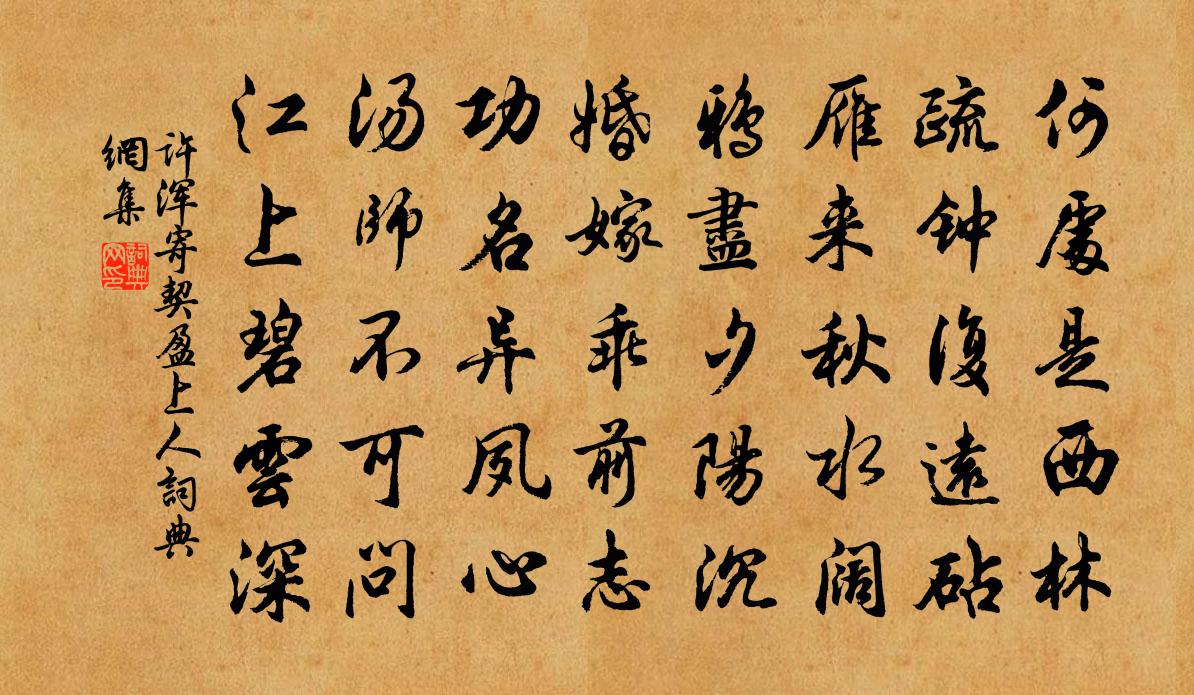 何處是西林
疏钟復遠砧
雁来秋水阔
鴉盡夕陽沉
婚嫁乖前志
功名异夙心
汤師不可問
江上碧雲深
许浑寄契盈上人詞典
網集
詞典網印